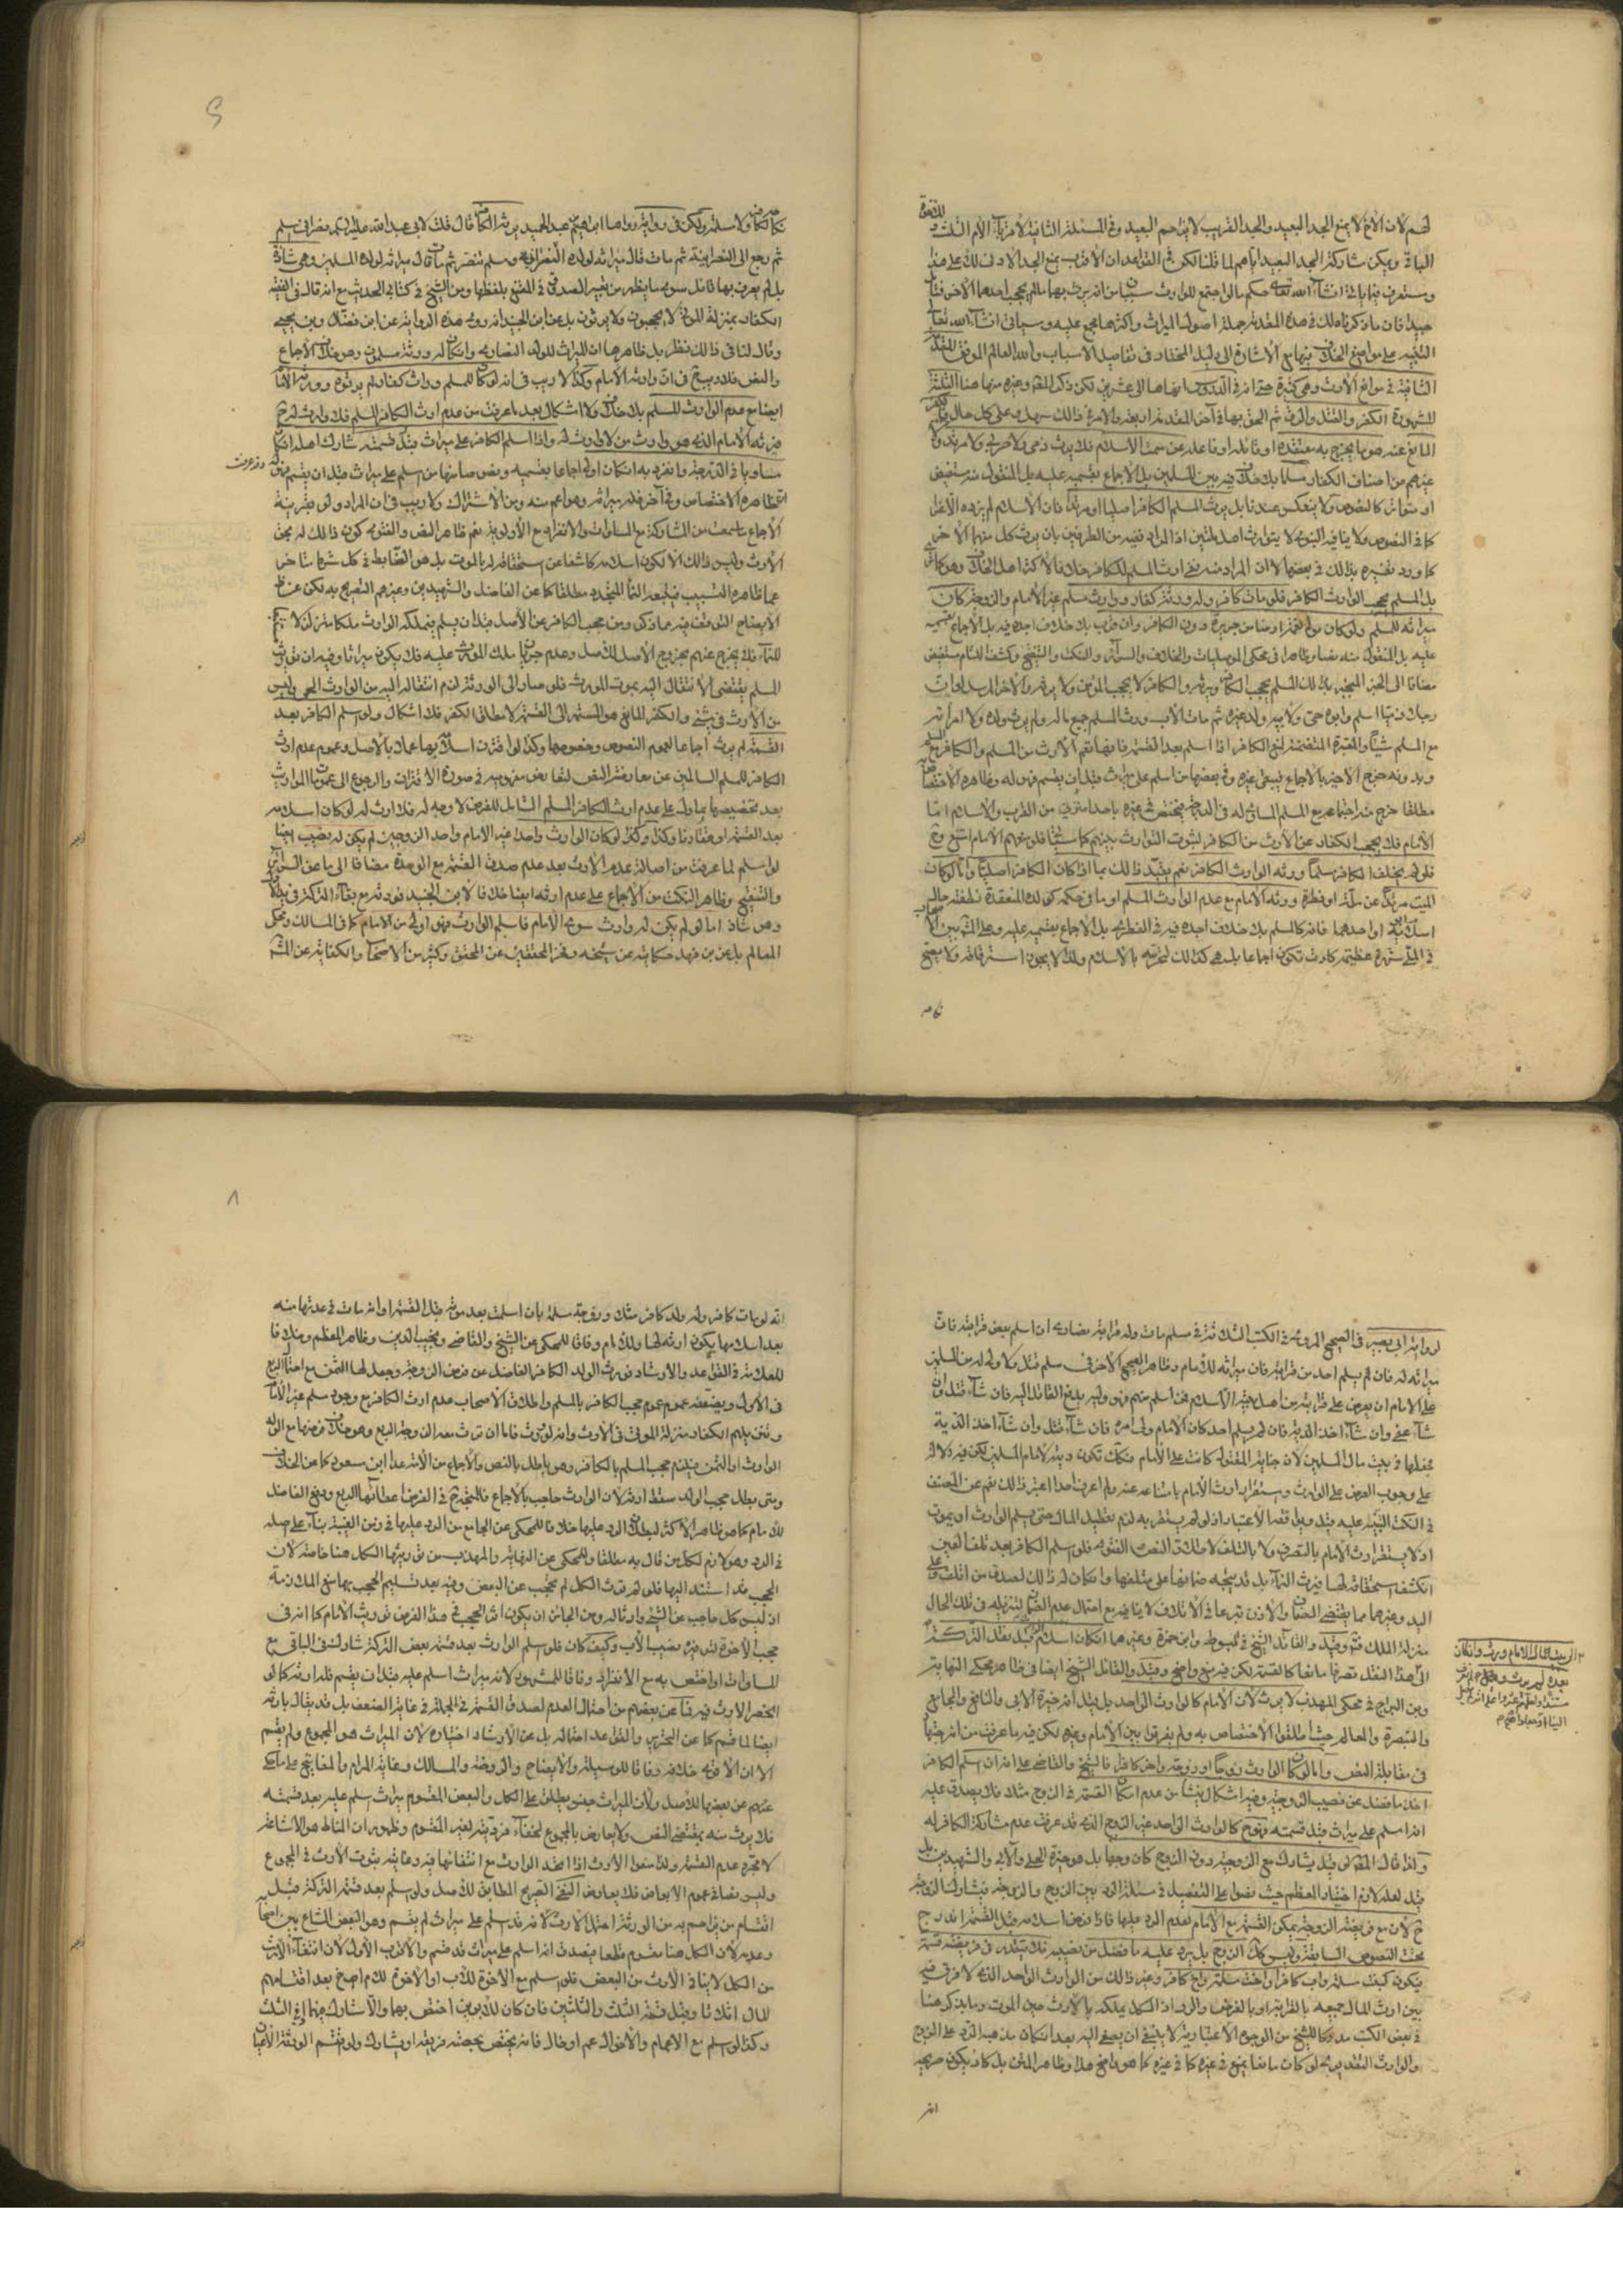 لهم لان الاخ لا يمنع الجد البعيد والجد القريب لا يزاحم البعيد وفي المسئلة الثانية لاقرباء الام الثلث
الباقي ويمكن مشاركة الجد البعيد اياهم لما قلنا لكن في القواعد ان الاقرب يمنع الجد الادنى
وستعرف فيما ياتي انشاء الله تعالى حكم ما لو اجتمع للوارث سببان من انه يرث بهما ما لم يحجب احدهما الاخر
جيدا فان ما ذكرناه لك في هذه المقدمة جملة اصول الميراث واكثرها مجمع عليه وسياتي انشاء الله تعالى
التنبيه على مواضع الخلاف فيها مع الاشارة الى دليل المختار في تفاصيل الاسباب والله العالم الموفق المقدمة
الثانية في موانع الارث وهي كثيرة حتى انه في الدروس انهاها الى عشرين لكن ذكر المصنف وغيره منها هنا الثلثة
المشهورة الكفر والقتل والرق ثم الحق بها في آخر المقدمة اربعة والامر في ذلك سهل وعلى كل حال
المانع عنه هو ما يخرج به معتقده او قائله او فاعله عن سمة الاسلام فلا يرث ذمي ولا حربي ولا مرتد ولا
غيرهم من اصناف الكفار مسلما بلا خلاف فيه بين المسلمين بل الاجماع بقسميه عليه بل المنقول منه مستفيض
او متواتر كالنصوص ولا ينعكس عندنا بل يرث المسلم الكافر اصليا او مرتدا فان الاسلام لم يزده الا عزا
كما في النصوص ولا ينافيه النبوي لا يتوارث اهل ملتين اذ المراد نفيه من الطرفين بان يرث كل منهما الاخر
كما ورد تفسيره بذلك في بعضها لا ان المراد منه نفي ارث المسلم للكافر خلافا لاكثر اهل الخلاف
بل المسلم يحجب الوارث الكافر فلو مات كافر وله ورثة كفار ووارث مسلم غير الامام والزوجة كان
ميراثه للمسلم ولو كان مولى نعمة او ضامن جريرة دون الكافر وان قرب بلا خلاف اجده فيه بل الاجماع بقسميه
عليه بل المنقول منه نصا وظاهرا في محكي الموصليات والخلاف والسرائر والنكت والتنقيح وكشف اللثام مستفيض
مضافا الى الخبر المنجبر بذلك المسلم يحجب الكافر ويرثه والكافر لا يحجب المؤمن ولا يرثه والاخر المرسل لو ان
رجلا ذميا اسلم وابوه حي ولابيه ولد غيره ثم مات الاب ورثه المسلم جميع ماله ولم يرثه ولده ولا امراته
مع المسلم شيئا والمعتبرة المتضمنة لمنع الكافر اذا اسلم بعد القسمة فانها تعم الارث من المسلم والكافر
مطلقا خرج منه
الامام فلا يحجب الكفار عن الارث من الكافر لثبوت التوارث بينهم كما ستعرف فلو منعهم الامام امتنع
فلو لم يخلف الكافر مسلما ورثه الوارث الكافر نعم يقيد ذلك بما اذا كان الكافر اصليا واما لو كان
الميت مرتدا عن ملة او فطرة ورثه الامام مع عدم الوارث المسلم او ما في حكمه
اسلام ابويه او احدهما فانه كالمسلم بلا خلاف اجده فيه في الفطري بل الاجماع بقسميه عليه وعلى المشهور بين الاصحاب
في الملي شهرة عظيمة كادت تكون اجماعا بل هي كذلك لتحرمه بالاسلام ولذا لا يجوز استرقاقه ولا يصح
نكاحه
كما لكافر ولا مسلمة ولكن في رواية رواها ابراهيم بن عبد الحميد يرثه الكافر قال قلت لابي عبد الله عليه السلام نصراني اسلم
ثم رجع الى النصرانية ثم مات قال ميراثه لولده النصراني ومسلم تنصر ثم مات قال ميراثه لولده المسلمين وهي شاذة
بل لم يعرف بها قائل سوى ما يظهر من تعبير الصدوق في المقنع بلفظها ومن الشيخ في كتابي الحديث مع انه قال في الفقيه
الكفار بمنزلة الموتى لا يحجبون ولا يرثون بل عن ابن الجنيد انه روى هذه الرواية عن ابن فضال وابن يحيى
وقال لنا في ذلك نظر بل ظاهرها ان الميراث للولد النصارى وان كان له ورثة مسلمون وهو خلاف الاجماع
والنص فلا ريب في ان وارثه الامام وكذا لا ريب في انه لو كان للمسلم وراث كفار لم يرثوه وورثه الامام
ايضا مع عدم الوارث المسلم بلا خلاف ولا اشكال بعد ما عرفت من عدم ارث الكافر المسلم فلا وارث له
فيرثه الامام الذي هو وارث من لا وارث له واذا اسلم الكافر على ميراث قبل قسمته شارك اهله ان كان
مساويا في الدرجة وانفرد به ان كان اولى اجماعا بقسميه ونصوصا منها من اسلم على ميراث قبل ان يقسم فهو له وقد عرفت
الظاهرة الاختصاص وفي آخر فله ميراثه وهو اعم منه ومن الاشتراك ولا ريب في ان المراد ولو بقرينة
الاجماع ما سمعت من المشاركة مع المساوات والانفراد مع الاولوية نعم ظاهر النص والفتوى كون ذلك له بجهة
الارث وليس ذلك الا لكون اسلامه كاشفا عن استحقاقه له بالموت بل هو الضابط في كل شرط متاخر
عما ظاهره التسبيب فيتبعه النماء المتجدد مطلقا كما عن الفاضل والشهيدين وغيرهم التصريح به لكن عن
الايضاح التوقف فيه مما ذكر ومن حجب الكافر عن الاصل قبل ان يسلم فيملكه الوارث ملكا متزلزلا
للنماء فلا يخرج عنهم بخروج الاصل للاصل وعدم جريان ملك المورث عليه فلا يكون ميراثا وفيه ان توريث
المسلم يقتضي الانتقال اليه بموت المورث فلو صار الى الورثة لزم انتقاله اليه من الوارث الحي وليس
من الارث في شيء والكفر المانع هو المستمر الى القسمة لا مطلق الكفر فلا اشكال ولو اسلم الكافر بعد
القسمة لم يرث اجماعا لعموم النصوص وخصوصها وكذا لو اقترن اسلامه بها عملا بالاصل وعموم عدم ارث
الكافر للمسلم السالمين عن معارضة النص لتعارض مفهوميه في صورة الاقتران والرجوع الى عمومات المواريث
بعد تخصيصها بما دل على عدم ارث الكافر المسلم الشامل للفرض لا وجه له فلا ارث له لو كان اسلامه
بعد القسمة او مقارنا وكذا لو كان الوارث واحدا غير الامام واحد الزوجين لم يكن له نصيب ايضا
لو اسلم لما عرفت من اصالة عدم الارث بعد عدم صدق القسمة مع الوحدة مضافا الى ما عن السرائر
والتنقيح وظاهر النكت من الاجماع على عدم ارثه ايضا خلافا لابن الجنيد فورثه مع بقاء التركة في يد الاول
وهو شاذ اما لو لم يكن له وارث سوى الامام فاسلم الوارث فهو اولى من الامام كما في المسالك ومحكي
المعالم بل عن ابن فهد حكايته عن شيخه وفخر المحققين عن المحقق وكثير من الاصحاب والكفاية عن المشهور
لرواية ابي بصير في الصحيح المروية في الكتب الثلاثة في مسلم مات وله قرابة نصارى ان اسلم بعض قرابته فان
ميراثه له فان لم يسلم احد من قرابته فان ميراثه للامام وظاهر الصحيح الاخر في مسلم قتل ولا ولي له من المسلمين
على الامام ان يعرض على قرابته من اهل بيته الاسلام فمن اسلم منهم فهو وليه يدفع القاتل اليه فان شاء قتل وان
شاء عفى وان شاء اخذ الدية فان لم يسلم احد كان الامام ولي امره فان شاء قتل وان شاء اخذ الدية
يجعلها في بيت مال المسلمين لان جناية المقتول كانت على الامام فكذلك تكون ديته لامام المسلمين لكن فيه دلالة
على وجوب العرض على الوارث واستقرار ارث الامام بامتناعه عنه ولم اعرف احدا اعتبر ذلك نعم عن المصنف
في النكت التنبيه عليه
اذ لا يستقر ارث الامام بالتصرف ولا بالتلف لاطلاق النص والفتوى فلو اسلم الكافر بعد تلف العين
انكشف استحقاقه لها فيرث النماء بل قد يتجه ضمانها على متلفها وان كان له ذلك
اليد وغيرهما مما يقتضي الضمان والاذن شرعا في الاتلاف لا ينافيه مع احتمال عدم الضمان لتنزيله في تلك الحال
منزلة الملك فتامل وقيل والقائل الشيخ في المبوط وابن حمزة وغيرهما ان كان اسلامه قبل نقل التركة
الى هذا النقل تصرفا مانعا كالقسمة لكن فيه منع واضح وقيل والقائل الشيخ ايضا في ظاهر محكي النهاية
وابن البراج في محكي المهذب لا يرث لان الامام كالوارث الواحد بل قيل انه خيرة الابي والنافع والجامع
والتبصرة والمعالم حيث اطلقوا الاختصاص به ولم يفرقوا بين الامام وغيره لكن فيه ما عرفت من انه
في مقابلة النص واما لو كان الوارث زوجا او زوجة واخر كافرا فالشيخ والقاضي على انه ان اسلم الكافر
اخذ ما فضل عن نصيب الزوجية وفيه اشكال ينشأ من عدم امكان القسمة في الزوج مثلا فلا يصدق عليه
انه اسلم على ميراث قبل قسمته فهو كالوارث الواحد غير الزوج الذي قد عرفت عدم مشاركة الكافر له
ولذا قال المصنف لو قيل يشارك مع الزوجة دون الزوج كان وجها بل هو خيرة الحلي والابي والشهيدين
قيل لعله لازم اختيار المعظم حيث نصوا على التفصيل في مسئلة الرد بين الزوج والزوجة فيشارك الزوجة
لان مع فريضة الزوجة يمكن القسمة مع الامام لعدم الرد عليها فاذا فرض اسلامه قبل القسمة اندرج
تحت النصوص السابقة وليس كذلك الزوج بل يرد عليه ما فضل من نصيبه فلا يتقدر في فريضته قسمة
فيكون كبنت مسلمة واب كافر او اخت مسلمة واخ كافر وغير ذلك من الوارث الواحد الذي لا فرق فيه
بين ارث المال جميعه بالقرابة او بالفرض والرد اذ الكل يملكه بالارث حين الموت وما يذكر هنا
في بعض الكتب مدركا للشيخ من الوجوه الاعتبارية لا ينبغي ان يصغى اليه بعد ان كان مذهبه الرد على الزوج
والوارث التقديري لو كان مانعا يمنع في غيره كما في غيره كما هو واضح هذا وظاهر المتن بل كاد يكون صريحه
انه
انه لو مات كافر وله ولد كافر مثلا وزوجة مسلمة بان اسلمت بعد موته قبل القسمة او انه مات في عدتها منه
بعد اسلامها يكون ارثه لها وللامام وفاقا للمحكي عن الشيخ والقاضي ونجيب الدين وظاهر المعظم وخلافا
للعلامة في القواعد والارشاد فورث الولد الكافر الفاضل عن فرض الزوجة وجعل لها الثمن مع احتمال الربع
في الاول ويضعفه عموم حجب الكافر بالمسلم واطلاق الاصحاب عدم ارث الكافر مع وجود مسلم غير الامام
وتنزيلهم الكفار منزلة الموتى في الارث وانه لو ورث فاما ان ترث معه الزوجة الربع وهو خلاف فرضها مع الولد
الوارث او الثمن فيلزم حجب المسلم بالكافر وهو باطل بالنص والاجماع من الائمة عدا ابن مسعود كما عن الخلاف
ومتى بطل حجب الولد سقط ارثه لان الوارث حاجب بالاجماع فالمتجه في الفرض اعطائها الربع ودفع الفاضل
للامام كما هو ظاهر الاكثر لبطلان الرد عليها خلافا للمحكي عن الجامع من الرد عليها في زمن الغيبة بناء على اصله
في الرد وهو لازم لكل من قال به مطلقا وللمحكي عن النهاية والمهذب من توريثها الكل هنا خاصة لان
الحجب قد استند اليها فلو لم ترث الكل لم تحجب عن البعض وفيه بعد تسليم الحجب بها منع الملازمة
اذ ليس كل حاجب عن الشيء وارثا له ومن الجائز ان يكون اثر الحجب في هذا الفرض توريث الامام كما انه في
حجب الاخوة لتوفير نصيب الاب وكيف كان فلو اسلم الوارث بعد قسمة بعض التركة شارك في الباقي مع
المساوات او اختص به مع الانفراد وفاقا للمشهور لانه ميراث اسلم عليه قبل ان يقسم فله ارثه كما لو
انحصر الارث فيه فما عن بعضهم من احتمال العدم لصدق القسمة في الجملة في غاية الضعف بل قد يقال بارثه
ايضا لما قسم كما عن التحرير والقواعد احتماله بل عن الارشاد اختياره لان الميراث هو المجموع ولم يقسم
الا ان الاقوى خلافه وفاقا للوسيلة والايضاح والروضة والمسالك وغاية المرام والمفاتيح على ما حكي
عنهم عن بعضها للاصل ولان الميراث جنس يطلق على الكل والبعض المقسوم ميراث اسلم عليه بعد قسمته
فلا يرث منه بمقتضى النص ولا يعارض بالمجموع لخفاء فرديته لغير المقسوم وظهور ان المناط هو الاشاعة
لا مجرد عدم القسمة ولذا منعوا الارث اذا اتحد الوارث مع انتفائها فيه وغايته ثبوت الارث في المجموع
وليس نصا في عموم الابعاض فلا يعارض النص الصريح المطابق للاصل ولو اسلم بعد قسمة التركة قبل
اقتسام من يزاحمه من الورثة احتمل الارث لانه قد اسلم على ميراث لم يقسم وهو البعض المشاع بين اصحابه
وعدمه لان الكل هنا مقسوم قطعا فيصدق انه اسلم على ميراث قد قسم والاقرب الاول لان انتفاء الارث
من الكل لا ينافي الارث من البعض فلو اسلم مع الاخوة للاب او الاخوة للام اخ بعد اقتسامهم
المال اثلاثا وقبل قسمة الثلث والثلثين فان كان للابوين اختص بهما والا شارك
وكذا لو اسلم مع الاعمام والاخوال عم او خال فانه يختص بحصة قريبه او يشارك ولو اقتسم الورثة الاعيان